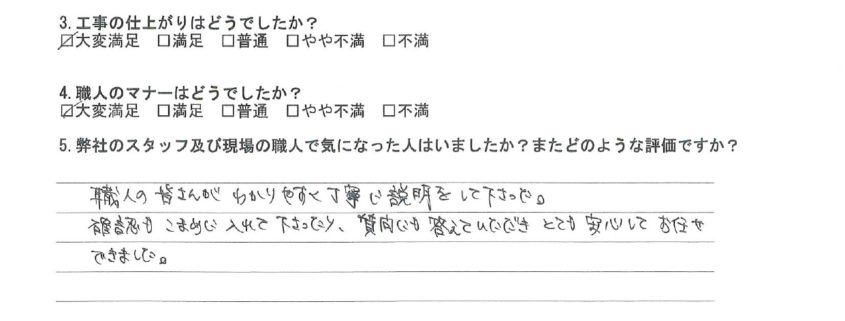 3. 工事の仕上がりはどうでしたか？
☑大変満足 □満足 □普通 □やや不満 □不満
4. 職人のマナーはどうでしたか？
☑大変満足 □満足 □普通 □やや不満 □不満
5. 弊社のスタッフ及び現場の職人で気になった人はいましたか？またどのような評価ですか？
職人の皆さんが わかりやすく丁寧に説明をして下さった。
確認も こまめに 入れて下さったり、質問にも答えていただき とても 安心して お任せ
できました。